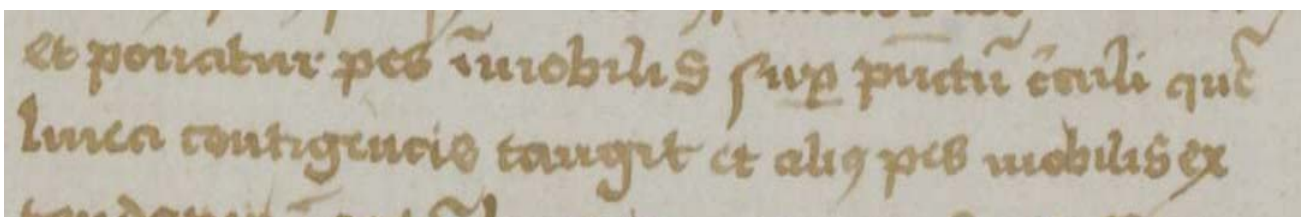 et ponatur pes īmobilis suꝑ pūctū c̄culi quē
linea contigencie tangit et aliꝯ pes mobilis ex